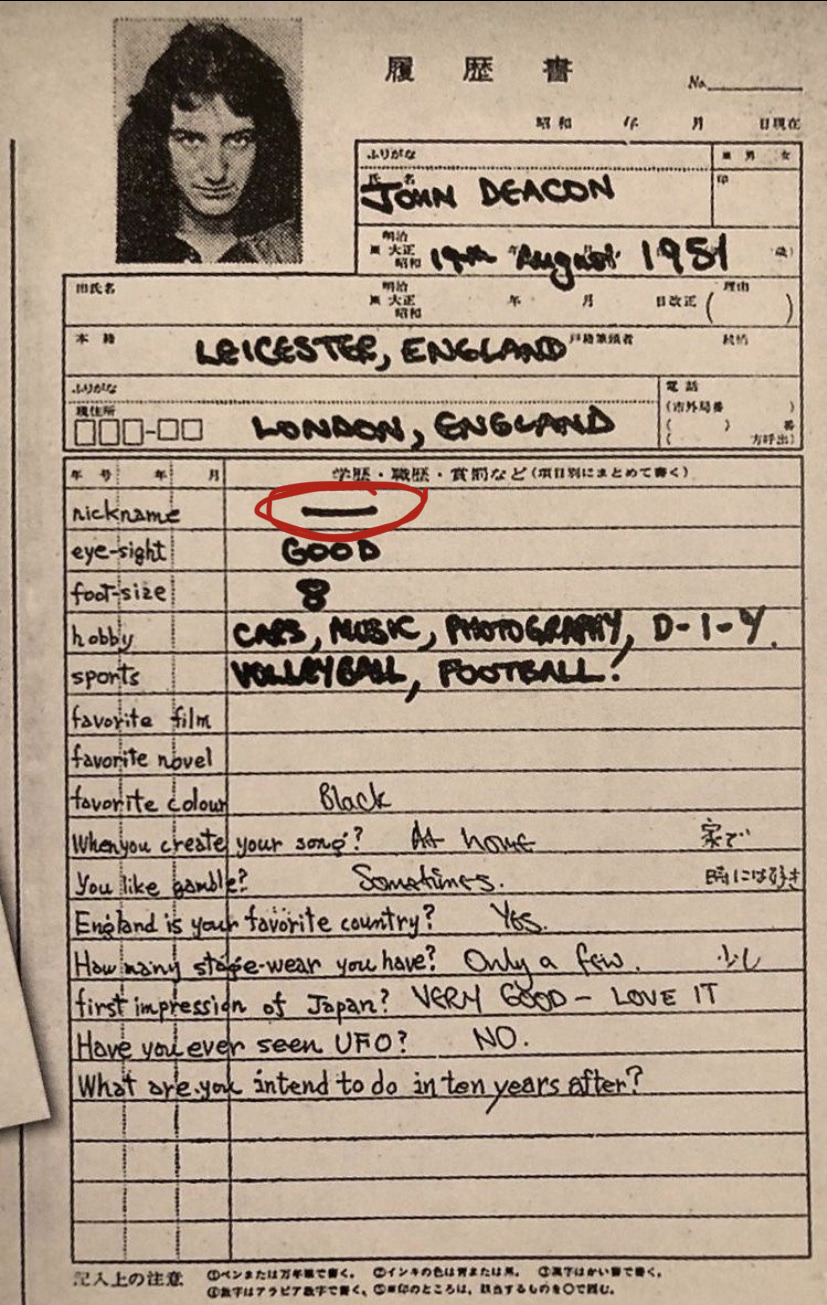 履歴書
No.
昭和 年 月 日現在
ふりがな ※ 男 女
氏 名 印
JOHN DEACON
明治
※ 大正
昭和
19th August 1951 歳)
旧氏名 明治 理由
※ 大正 年 月 日改正 ( )
昭和
本籍 LEICESTER, ENGLAND 戸籍筆頭者 続柄
ふりがな 電話
現住所 (市外局番 )
LONDON, ENGLAND ( ) 番
( 方呼出)
年号 年 月 学歴・職歴・賞罰など(項目別にまとめて書く)
nickname —
eye-sight GOOD
foot-size 8
hobby CARS, MUSIC, PHOTOGRAPHY, D-I-Y.
sports VOLLEYBALL, FOOTBALL!
favorite film
favorite novel
favorite colour Black
When you create your song? At home 家で
You like gamble? Sometimes. 時には好き
England is your favorite country? Yes.
How many stage-wear you have? Only a few. 少し
first impression of Japan? VERY GOOD - LOVE IT
Have you ever seen UFO? NO.
What are you intend to do in ten years after?
記入上の注意 ①ペンまたは万年筆で書く。 ②インキの色は青または黒。 ③漢字はかい書で書く。
④数字はアラビア数字で書く。 ⑤※印のところは、該当するものを○で囲む。